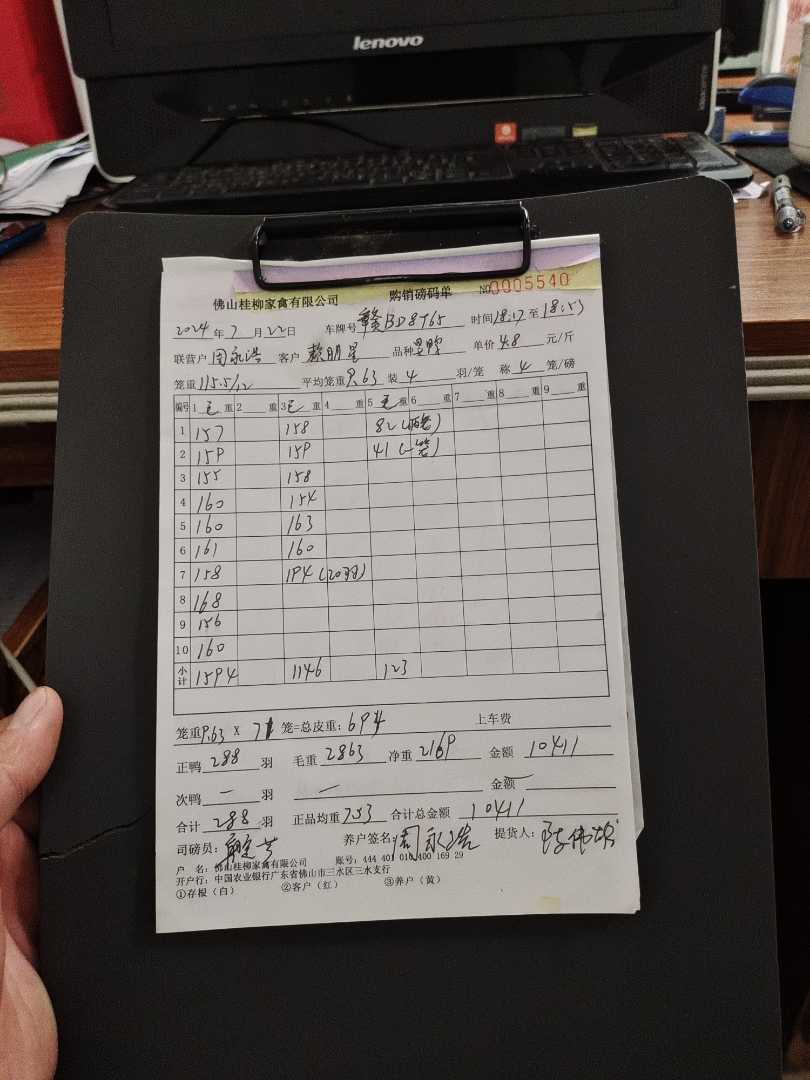 lenovo
佛山桂柳家禽有限公司 购销磅码单 NO 0005540
2024年7月22日 车牌号 赣BD8765 时间18:17至18:53
联营户 周永浩 客户 赖明星 品种 单价4.8元/斤
笼重115.5/12 平均笼重9.63 装4羽/笼 称4笼/磅
编号 1毛重 2重 3毛重 4重 5毛重 6重 7重 8重 9重
1 157 158 82(两笼)
2 159 159 41(一笼)
3 155 158
4 160 154
5 160 163
6 161 160
7 158 194(20羽)
8 168
9 156
10 160
小计 1594 1146 123
笼重9.63X71笼=总皮重:694 上车费
正鸭288羽 毛重2863 净重2169 金额10411
次鸭一羽 一 金额一
合计288羽 正品均重7.53 合计总金额10411
司磅员: 养户签名:周永浩 提货人:
户 名:佛山桂柳家禽有限公司 账号:444 401 010 400 169 29
开户行:中国农业银行广东省佛山市三水区三水支行
①存根(白) ②客户(红) ③养户(黄)